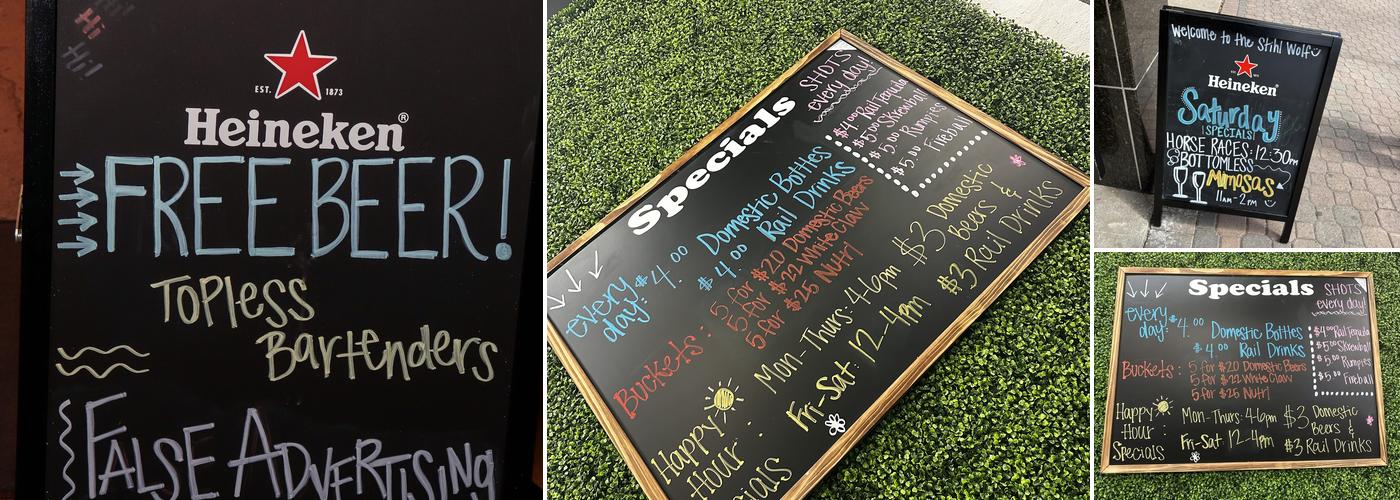 Hi!
Hi
Hi!
EST. 1873
Heineken®
FREE BEER!
TOPless
Bartenders
FALSE ADVERTISING
Specials
SHOTS
every day!
$4.00 Rail Tequila
$5.00 Skrewball
$5.00 Rumpies
$5.00 Fireball
every
day:
$4.00 Domestic Bottles
$4.00 Rail Drinks
Buckets:
5 for $20 Domestic Beers
5 for $22 White Claw
5 for $25 Nutrl
Happy
Hour:
cials
Mon-Thurs: 4-6pm
Fri-Sat: 12-4pm
$3 Domestic
Beers &
$3 Rail Drinks
Welcome to the Stihl Wolf
Heineken
Saturday
!SPECIALS!
HORSE RACES: 12:30pm
BOTTOMLESS
Mimosas
11am-2pm
Specials
SHOTS
every day!
every
day:
$4.00 Domestic Bottles
$4.00 Rail Drinks
$4.00 Rail Tequila
$5.00 Skrewball
$5.00 Rumpies
$5.00 Fireball
Buckets:
5 for $20 Domestic Beers
5 for $22 White Claw
5 for $25 Nutrl
Happy
Hour:
Specials
Mon-Thurs: 4-6pm
Fri-Sat: 12-4pm
$3 Domestic
Beers &
$3 Rail Drinks